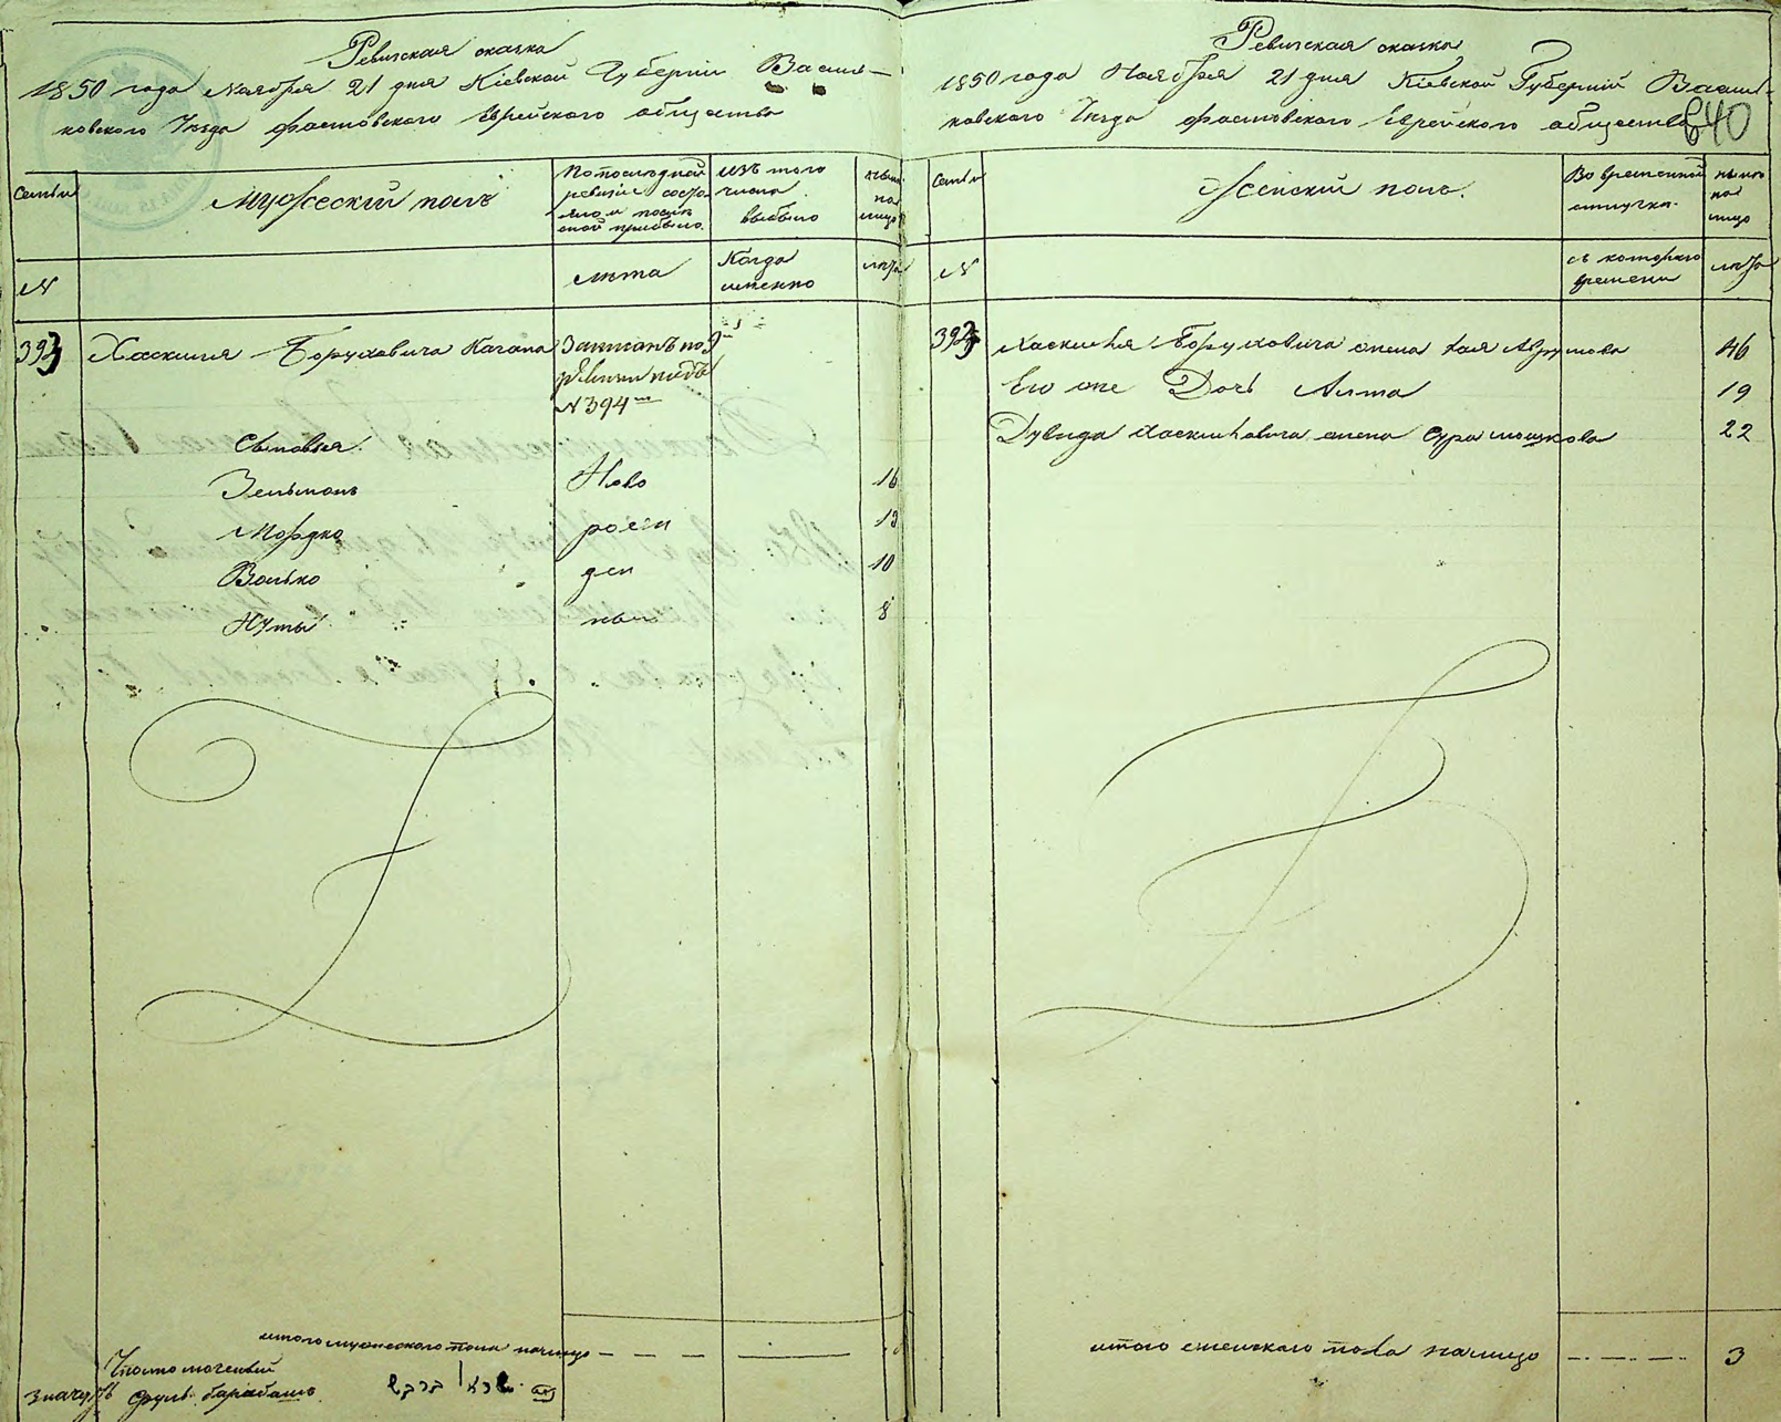 Ревизская сказка
1850 года Ноября 21 дня Кіевской Губерніи Василь-
ковского Уезда фастовского Еврейского общества
Семьи
Мужеский полъ
По последной ревизіи состояло и после оной прибыло
изъ того числа выбыло
ныне на лицо
N
лета
Когда именно
лета
393
Хаскиля Боруховича Кагана
Записанъ по 9й
ревизіи подъ
N 394м
Сыновья.
Зельманъ
Ново
16
Мордко
рожен
13
Волько
ден
10
Нуты
ные
8
итого мужеского пола налицо
Уполномоченый
значутъ Сруль барабашъ
Ревизская сказка
1850 года Ноября 21 дня Кіевской Губерніи Василь-
ковского Уезда фастовского Еврейского общества
840
Семьи
Женский полъ.
Во временной отлучке.
ныне на лицо
N
съ которого времени
лета
393
Хаскиля Боруховича жена Хая Аврумова
46
Его же Дочь Алта
19
Дувида Хаскилевича жена Сура мошкова
22
итого женского пола налицо
3